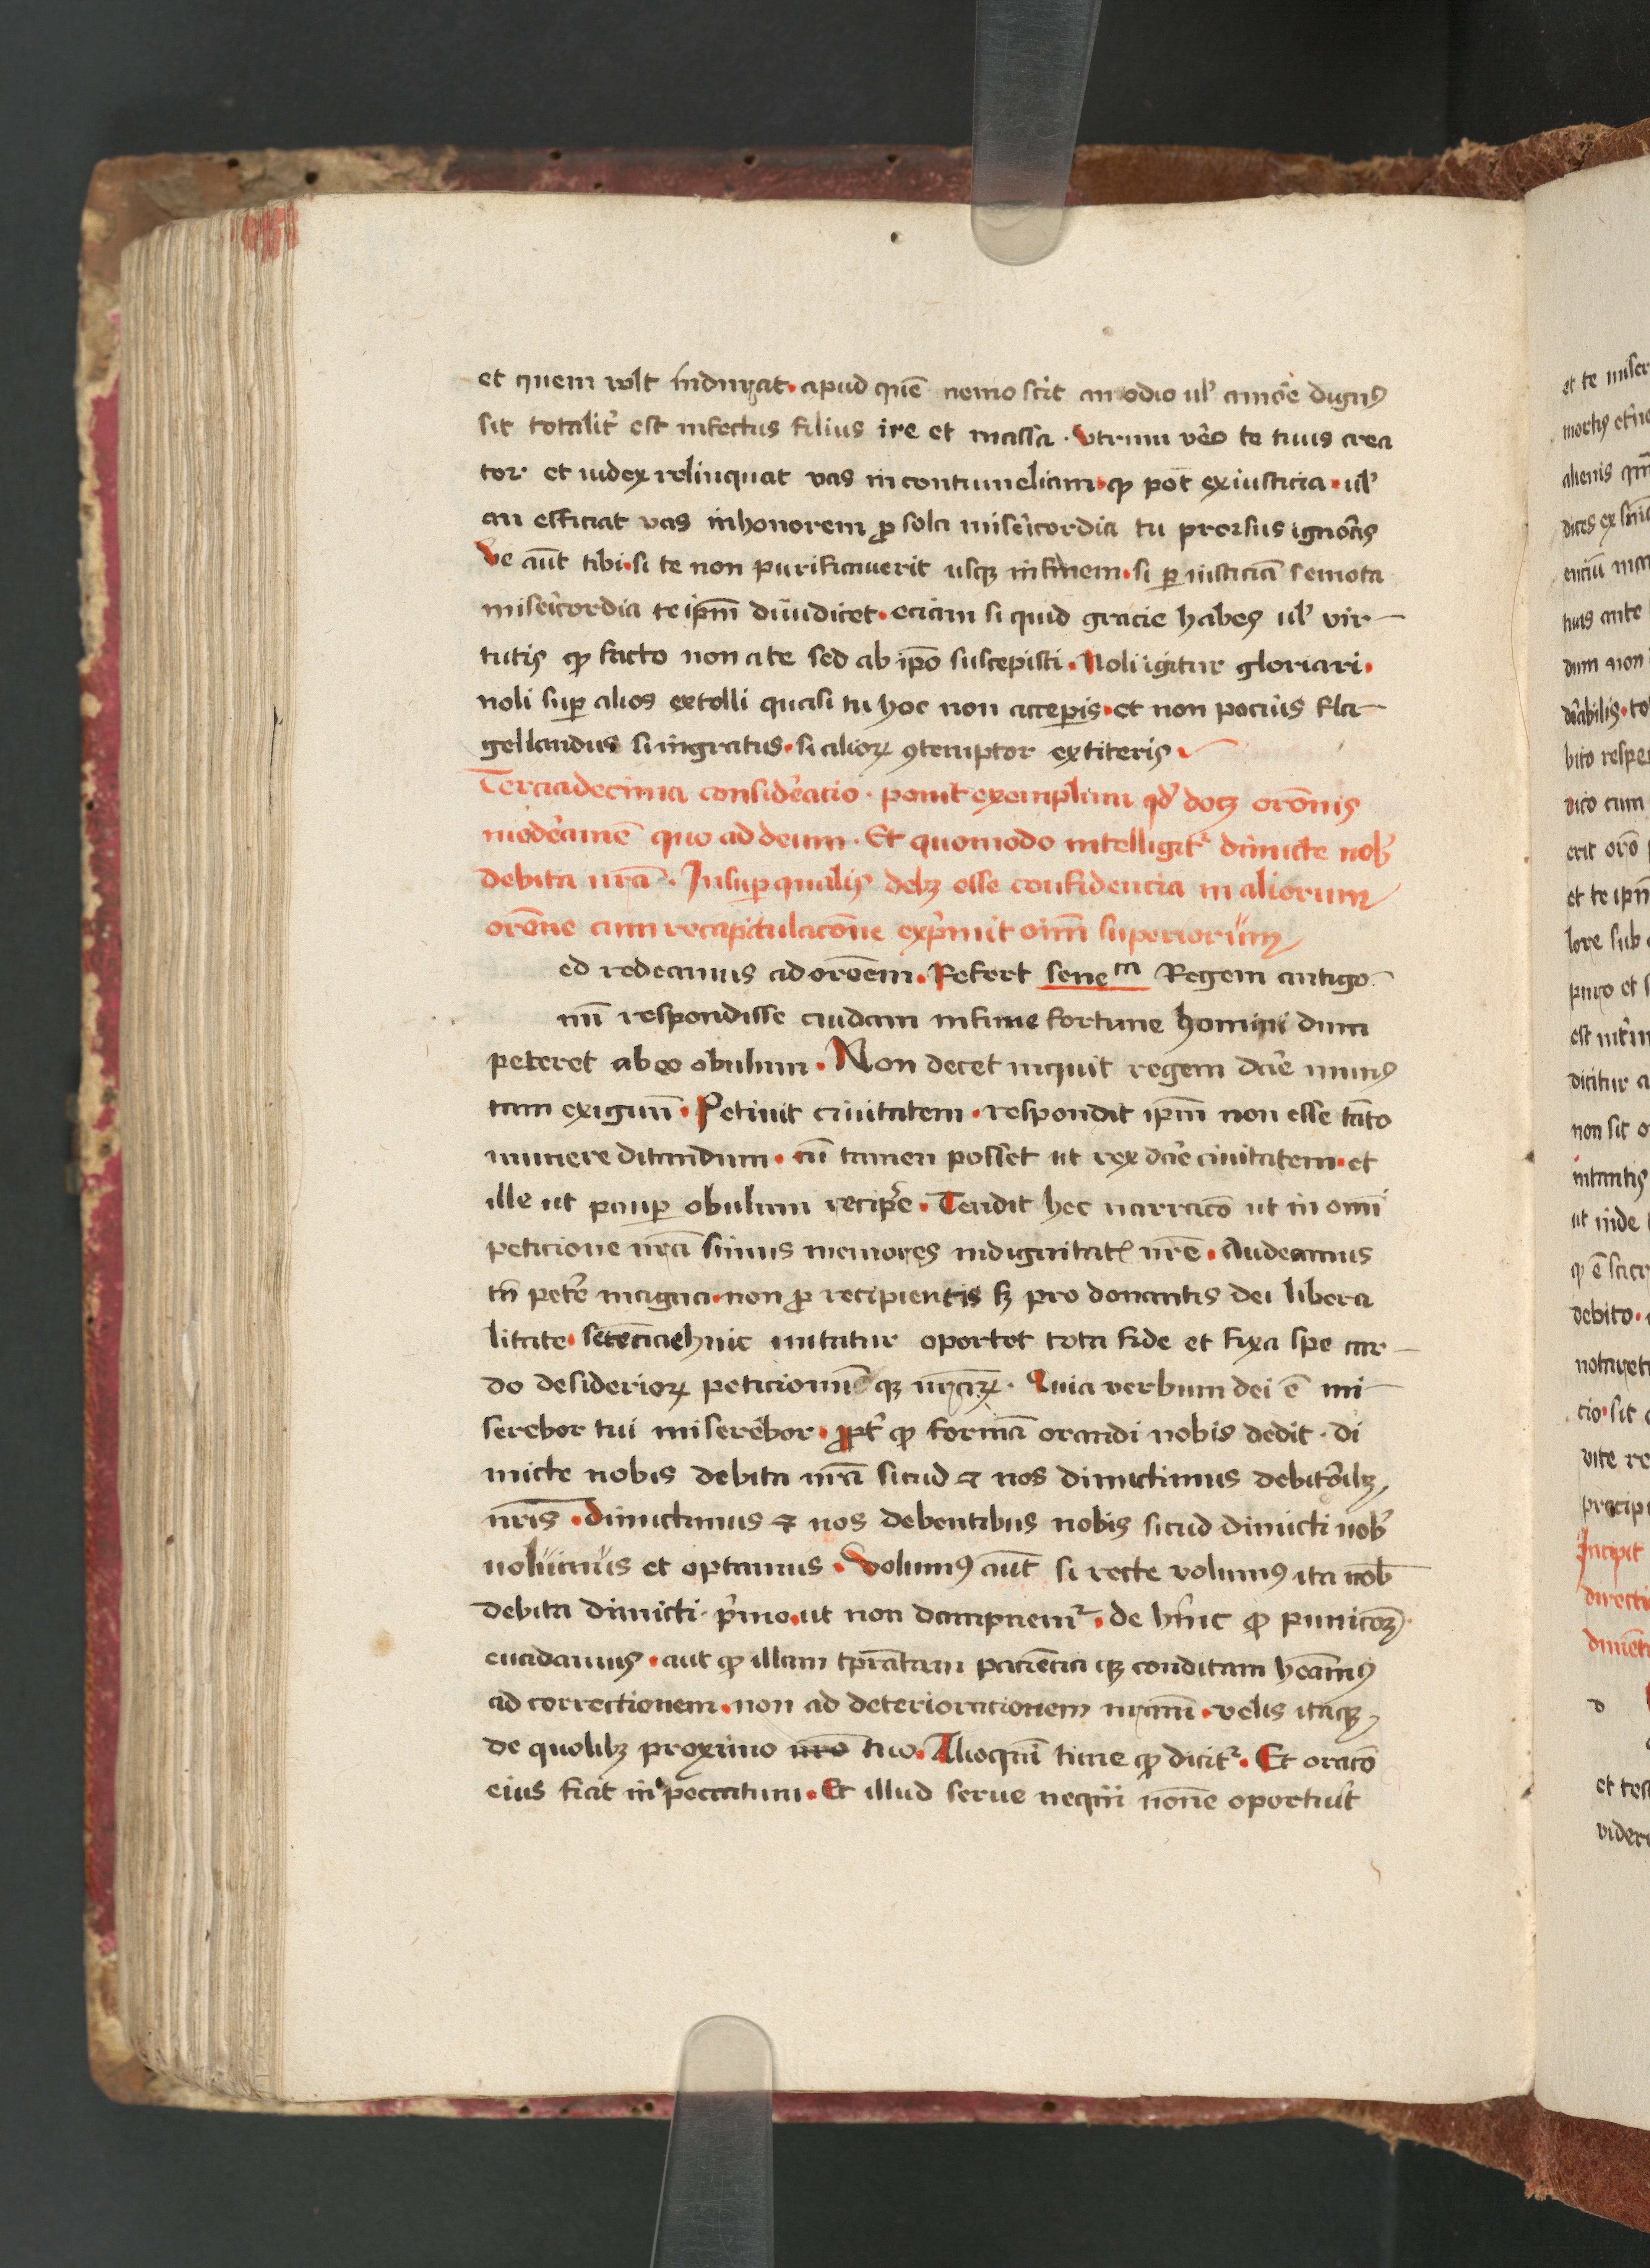 et quem wlt indurat. apud quē nemo scit an odio ul' amōe dignꝰ
sit totalit' est infectus filius ire et massa. Utrum vēo te tuus crea
tor et iudex relinquat vas in contumeliam. qꝫ pōt ex iusticia. ul'
an efficiat vas in honorem ꝓ sola misēicordia tu prorsus ignoras
Ve aūt tibi. si te non purificauerit usqꝫ in finem. si ꝑ iusticiā semota
misēicordia te ipm̄ diiudicet. eciam si quid gracie habes ul' vir-
tutis qꝫ facto non a te sed ab ipō suscepisti. Noli igitur gloriari.
noli suꝑ alios extolli quasi tu hoc non acceꝑis. et non pocius fla-
gellandus si ingratus. si alioꝝ ꝯtemptor extiteris
Terciadecima considēacio. ponit exemplum qd' docꝫ orōnis
modēamē quo ad deum. Et quomodo intelligit̃ dimicte nob'
debita nrā. Insuꝑ qualis debꝫ esse confidencia in aliorum
orōne cum recapitulacōne exp'mit oīm superiorum
ed redeamus ad orōem. Refert seneca Regem antigo
nū respondisse cuidam infime fortune homini dum
peteret ab eo obulum. Non decet inquit regem dāe munꝰ
tam exiguū. Petiuit ciuitatem. respondit ipm̄ non esse tāto
munere ditandum. cū tamen posset ut rex dāe ciuitatem. et
ille ut pauꝑ obulum recip'e. Tendit hec narracō ut in omī
peticione nrā simus memores indignitat̃ nrē. Audeamus
tn̄ pet'e magna. non ꝓ recipientis sꝫ pro donantis dei libera
litate. sētēcie huic nitatur oportet tota fide et fixa spe car-
do desiderioꝝ peticionū qꝫ nrāꝝ. Quia verbum dei ē mi-
serebor tui miserēbor. ꝓpt' qꝫ formā orandi nobis dedit. di
micte nobis debita nrā sicud ⁊ nos dimictimus debitōibꝫ
nrīs. dimictimus ⁊ nos debentibus nobis sicud dimicti nob'
uolumus et optamus. Volumꝰ aūt si recte volumꝰ ita nob̄
debita dimicti. p'mo. ut non dampnem̃. de
euadamus. aut qꝫ illam tꝑratam paciēcia qꝫ conditam hēamꝰ
ad correctionem. non ad deterioracionem nrām. velis itaqꝫ
de quolibꝫ proximo nrō tuo. Alioquī time qꝫ dicit̃. Et oracō
eius fiat in peccatum. Et illud serue nequā nonne oportuit